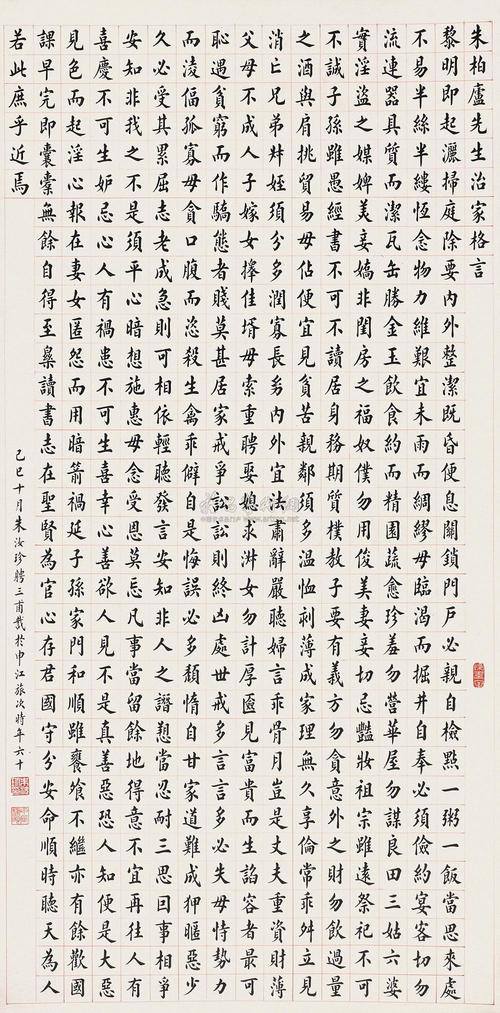 朱柏廬先生治家格言
黎明即起灑掃庭除要內外整潔既昏便息關鎖門戶必親自檢點一粥一飯當思來處
不易半絲半縷恆念物力維艱宜未雨而綢繆毋臨渴而掘井自奉必須儉約宴客切勿
流連器具質而潔瓦缶勝金玉飲食約而精園蔬愈珍羞勿營華屋勿謀良田三姑六婆
實淫盜之媒婢美妾嬌非閨房之福奴僕勿用俊美妻妾切忌豔妝祖宗雖遠祭祀不可
不誠子孫雖愚經書不可不讀居身務期質樸教子要有義方勿貪意外之財勿飲過量
之酒與肩挑貿易毋佔便宜見貧苦親鄰須多溫恤刻薄成家理無久享倫常乖舛立見
消亡兄弟叔姪須分多潤寡長幼內外宜法肅辭嚴聽婦言乖骨肉豈是丈夫重資財薄
父母不成人子嫁女擇佳壻毋索重聘娶媳求淑女勿計厚匳見富貴而生諂容者最可
恥遇貧窮而作驕態者賤莫甚居家戒爭訟訟則終凶處世戒多言言多必失毋恃勢力
而淩偪孤寡毋貪口腹而恣殺生禽乖僻自是悔誤必多頹惰自甘家道難成狎暱惡少
久必受其累屈志老成急則可相依輕聽發言安知非人之譖愬當忍耐三思因事相爭
安知非我之不是須平心暗想施惠毋念受恩莫忘凡事當留餘地得意不宜再往人有
喜慶不可生妒忌心人有禍患不可生喜幸心善欲人見不是真善惡恐人知便是大惡
見色而起淫心報在妻女匿怨而用暗箭禍延子孫家門和順雖饔飧不繼亦有餘歡國
課早完即囊橐無餘自得至樂讀書志在聖賢為官心存君國守分安命順時聽天為人
若此庶乎近焉
己巳十月朱汝珍聘三甫識於申江旅次時年六十